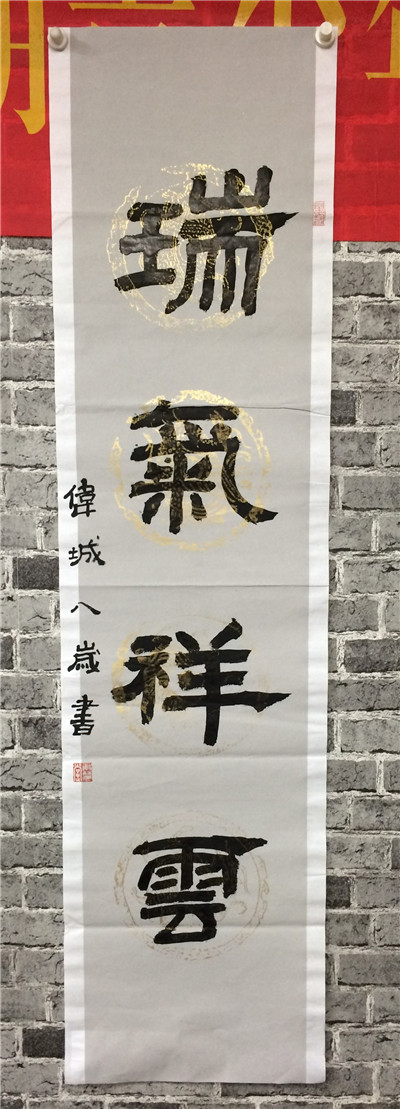 瑞氣祥雲
偉城八歲書